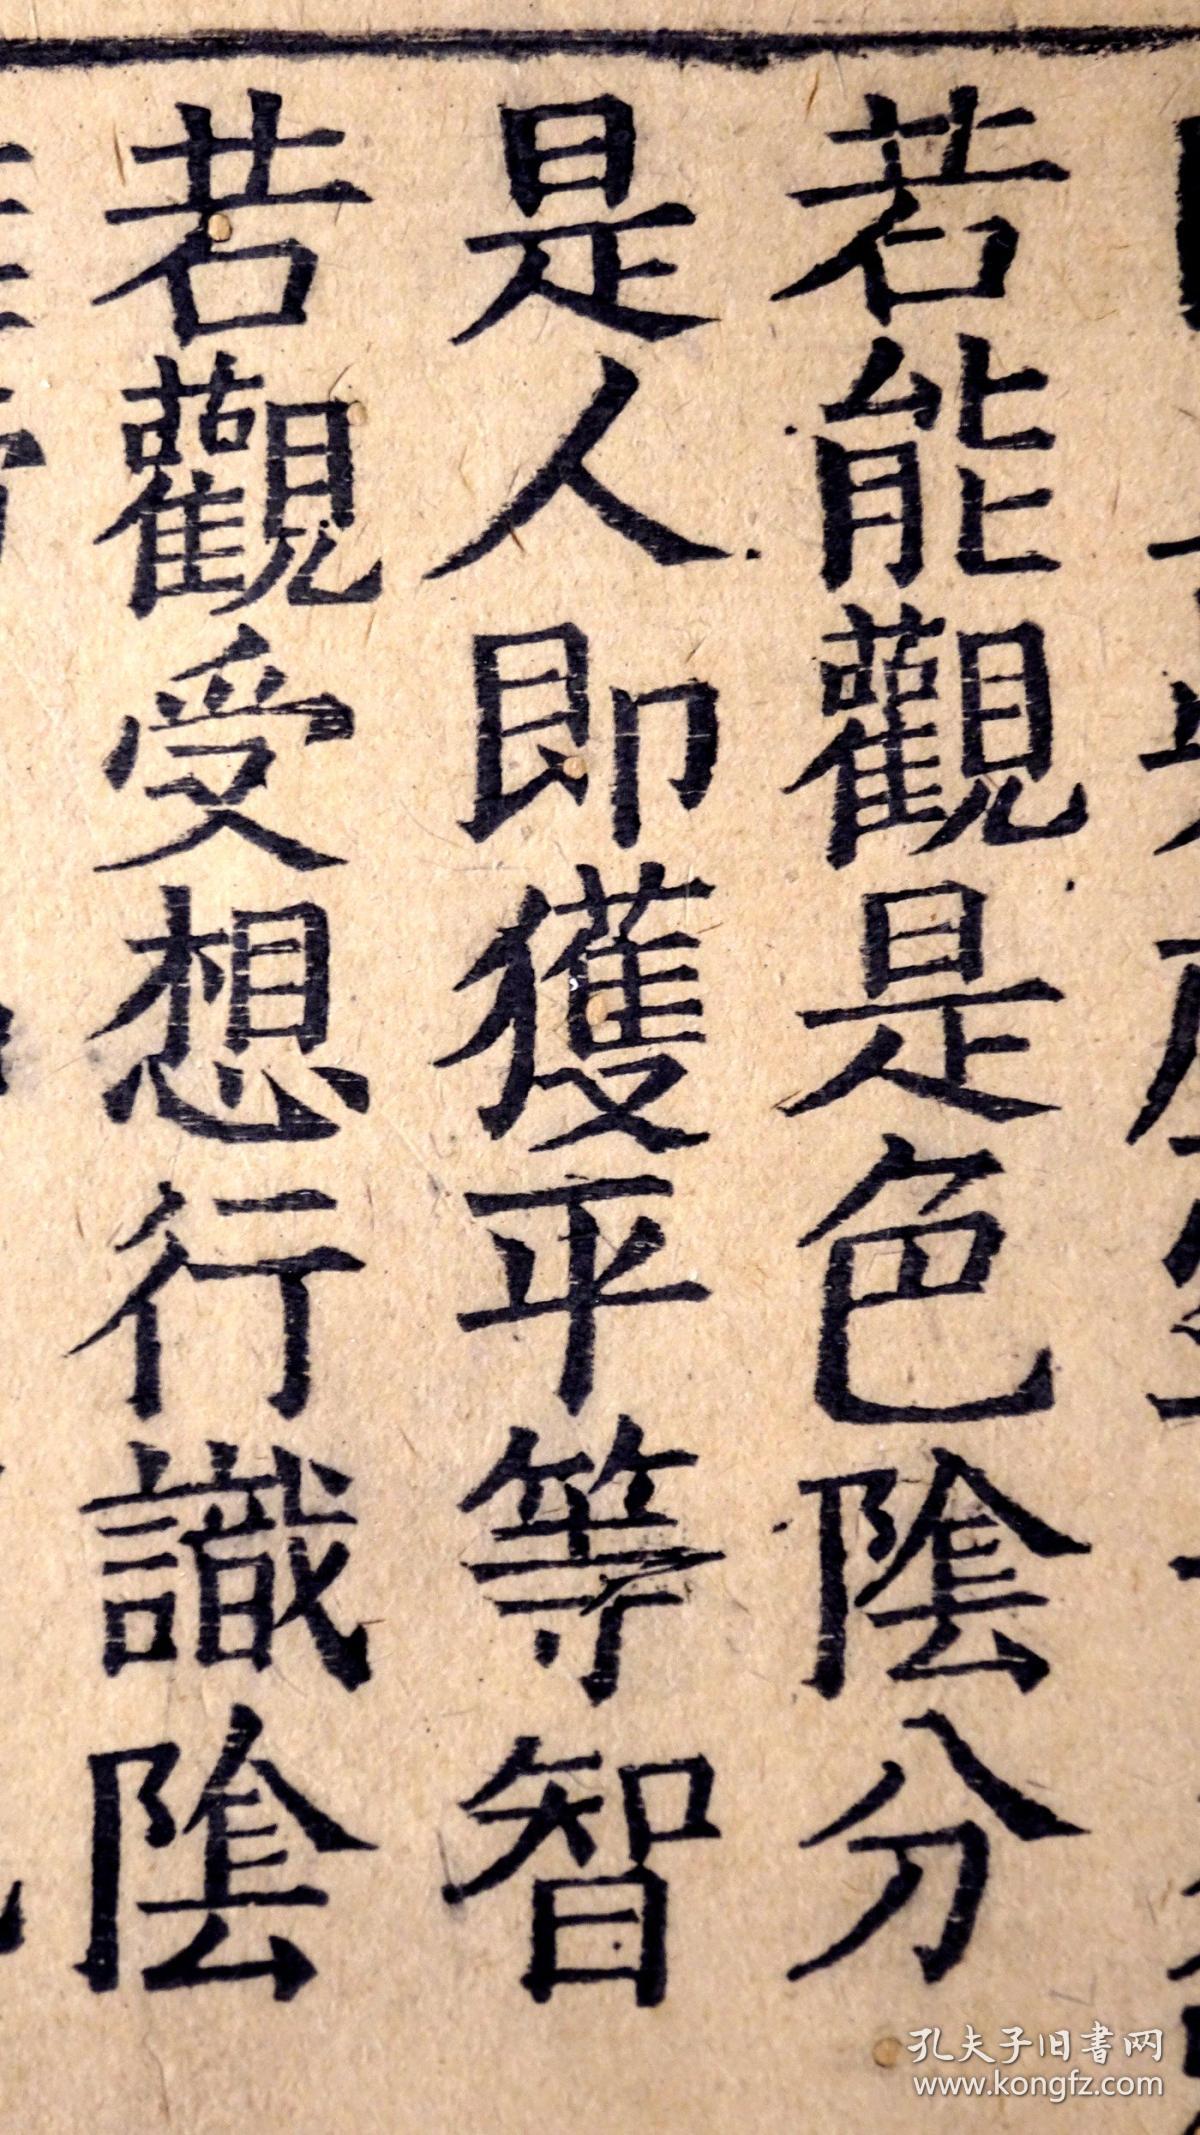 若能觀是色陰分
是人即獲平等智
若觀受想行識陰
孔夫子旧书网
www.kongfz.com